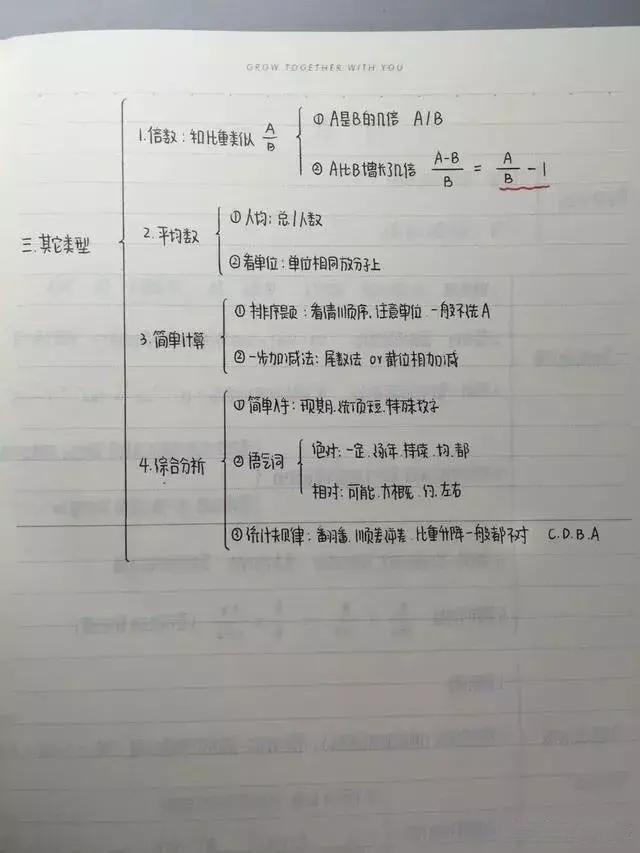 GROW TOGETHER WITH YOU
三.其它类型
1.倍数:和比重类似 A/B
① A是B的几倍 A/B
② A比B增长了几倍 A-B/B = A/B - 1
2.平均数
① 人均:总/人数
② 看单位:单位相同放分子上
3.简单计算
① 排序题:看清顺序.注意单位 一般不选A
② 一步加减法:尾数法 or 截位相加减
4.综合分析
① 简单入手:现期.选项短.特殊数字
② 语气词
绝对:一定.逐年.持续.均.都
相对:可能.大概.约.左右
③ 统计表规律:翻番.顺差逆差.比重升降一般都不对 C.D.B.A